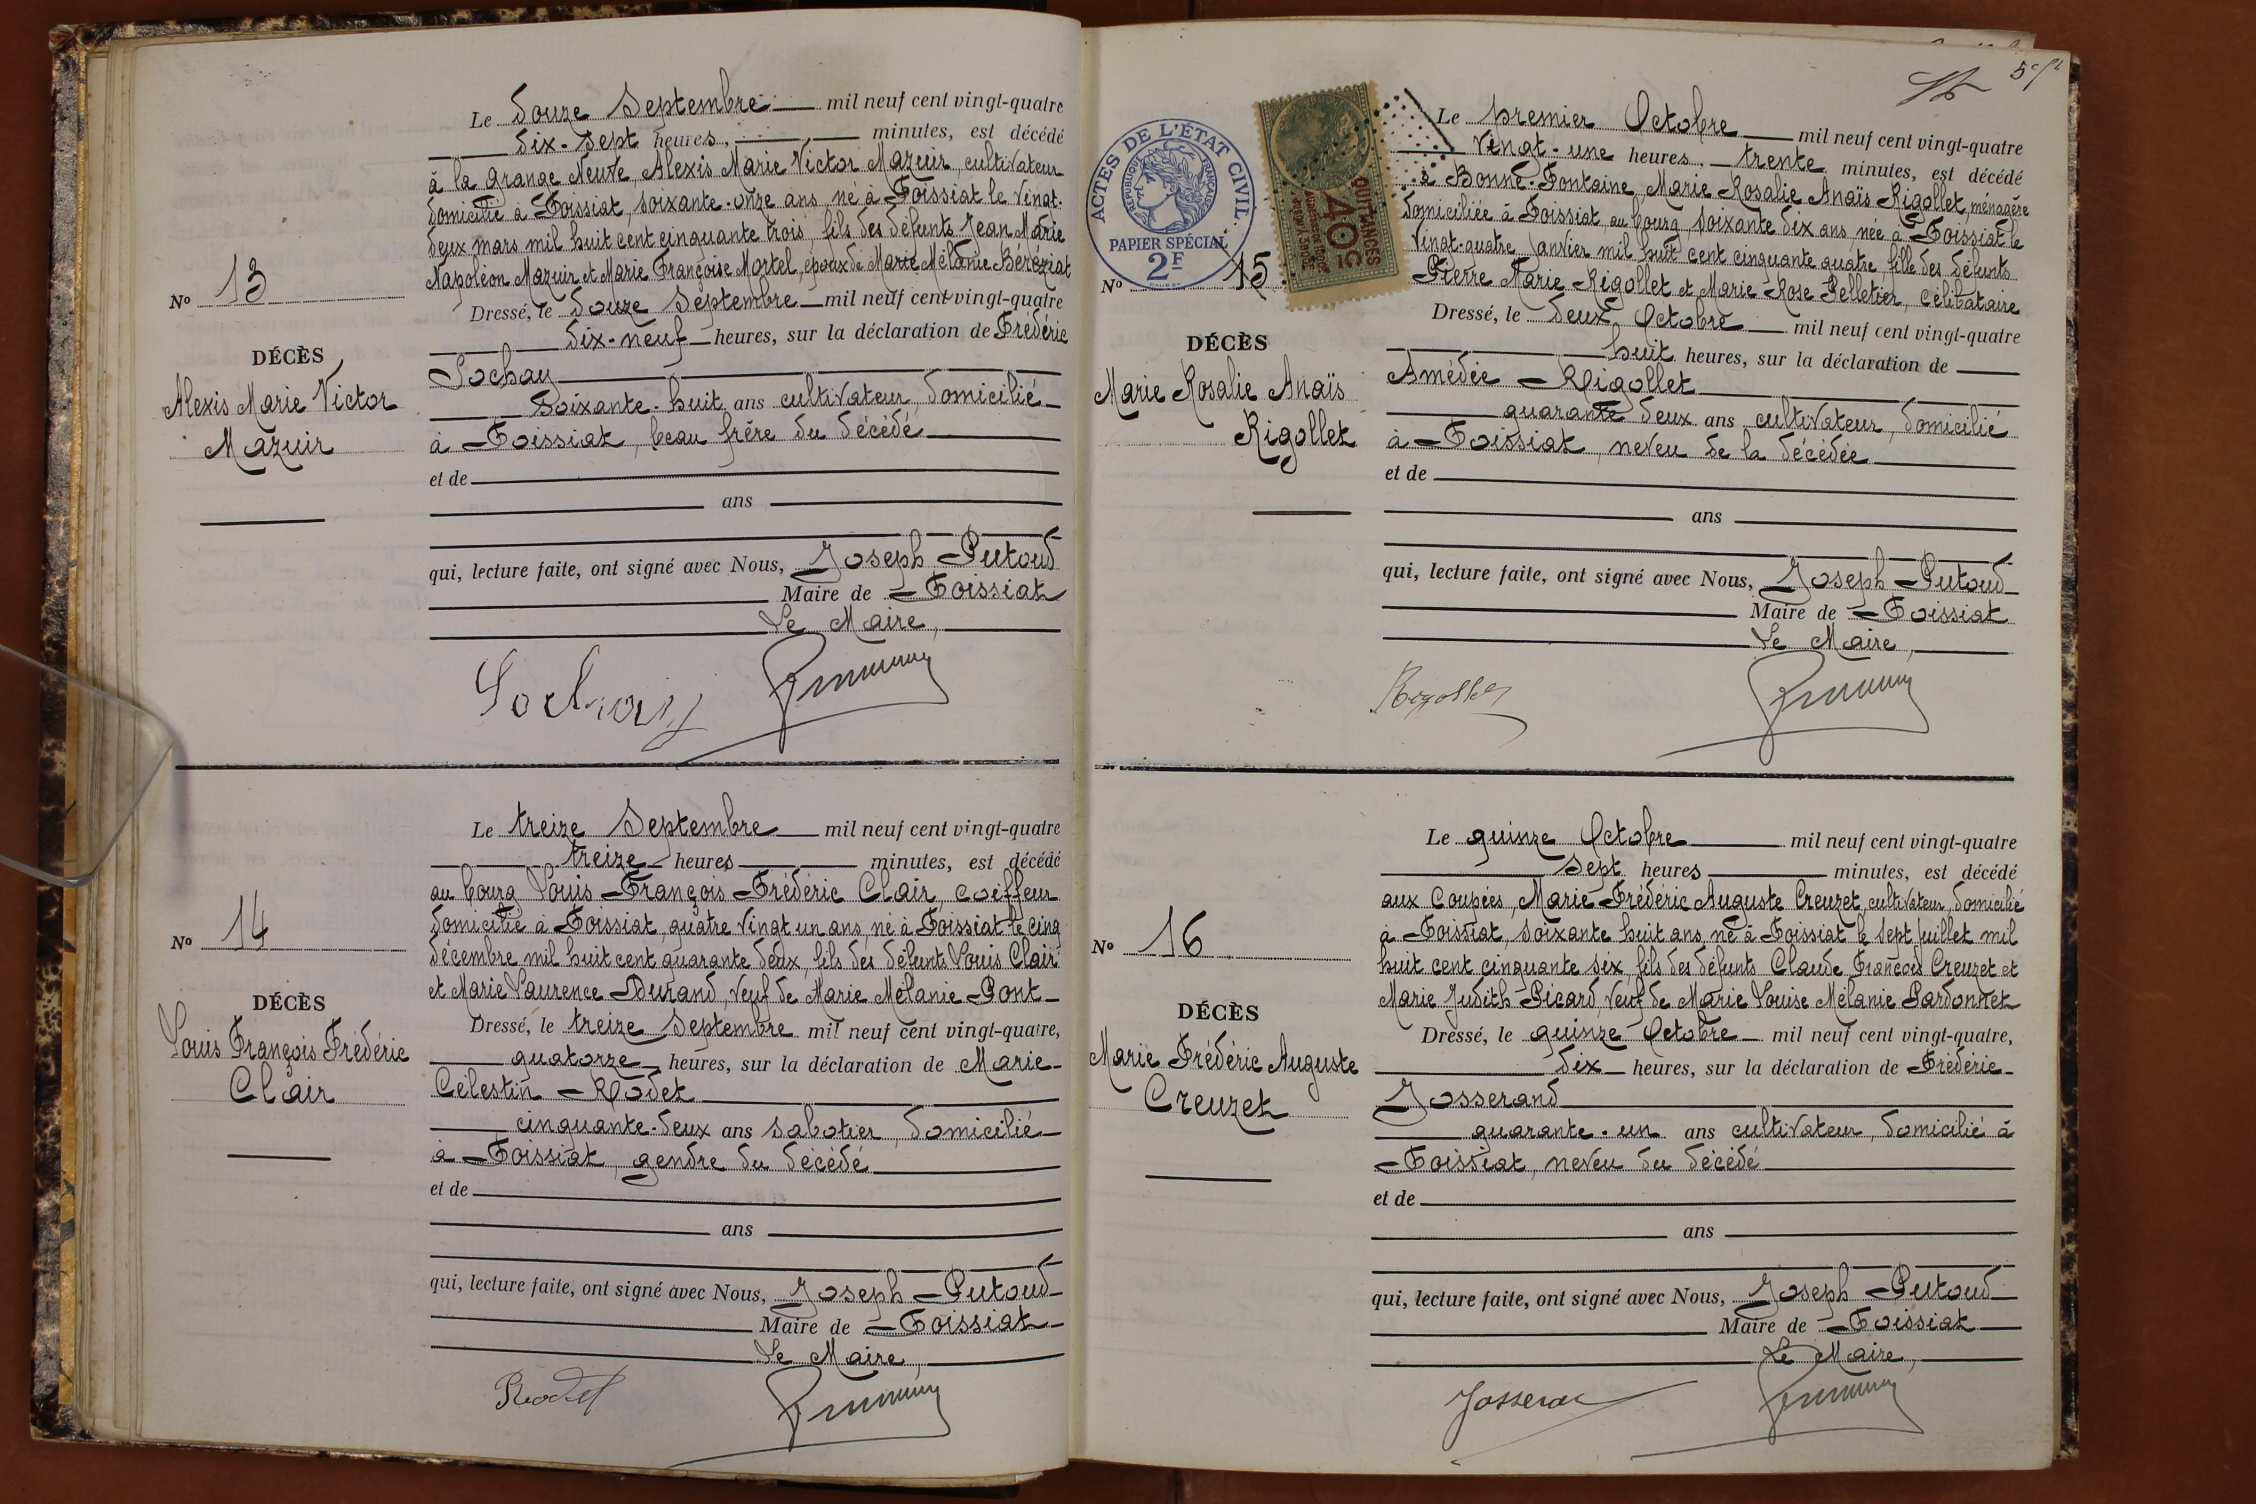 Le douze Septembre mil neuf cent vingt-quatre
dix-sept heures, minutes, est décédé
à la Grange Neuve, Alexis Marie Victor Mazuir, cultivateur
domicilié à Foissiat, soixante-onze ans, né à Foissiat le vingt-
deux mars mil huit cent cinquante trois, fils des défunts Jean Marie
Napoléon Mazuir et Marie Françoise Mortel, époux de Marie Mélanie Béréziat
Nº 13
Dressé, le douze Septembre mil neuf cent vingt-quatre
dix-neuf heures, sur la déclaration de Frédéric
DÉCÈS
Sochay
Alexis Marie Victor
Mazuir
soixante-huit ans cultivateur, domicilié
à Foissiat, beau frère du décédé
et de
ans
qui, lecture faite, ont signé avec Nous, Joseph Putoud
Maire de Foissiat
Le Maire,
Sochay
Le treize Septembre mil neuf cent vingt-quatre
treize heures minutes, est décédé
au bourg Louis François Frédéric Clair, coiffeur
domicilié à Foissiat, quatre vingt un ans, né à Foissiat le cinq
décembre mil huit cent quarante deux, fils des défunts Louis Clair
et Marie Laurence Durand, veuf de Marie Mélanie Pont
Nº 14
Dressé, le treize Septembre mil neuf cent vingt-quatre,
quatorze heures, sur la déclaration de Marie
DÉCÈS
Louis François Frédéric
Clair
Célestin Rodet
cinquante-deux ans sabotier, domicilié
à Foissiat, gendre du décédé
et de
ans
qui, lecture faite, ont signé avec Nous, Joseph Putoud
Maire de Foissiat
Le Maire,
Rodet
ACTES DE L'ÉTAT CIVIL
RÉPUBLIQUE FRANÇAISE
PAPIER SPÉCIAL
2F
QUITTANCES
40c
Le premier Octobre mil neuf cent vingt-quatre
vingt-une heures trente minutes, est décédé
à Bonne-Fontaine, Marie Rosalie Anaïs Rigollet, ménagère
domiciliée à Foissiat, au bourg, soixante dix ans, née à Foissiat le
vingt-quatre janvier mil huit cent cinquante quatre, fille des défunts
Pierre Marie Rigollet et Marie Rose Pelletier, célibataire
Nº 15
Dressé, le deux Octobre mil neuf cent vingt-quatre
huit heures, sur la déclaration de
DÉCÈS
Marie Rosalie Anaïs
Rigollet
Amédée Rigollet
quarante deux ans cultivateur, domicilié
à Foissiat, neveu de la décédée
et de
ans
qui, lecture faite, ont signé avec Nous, Joseph Putoud
Maire de Foissiat
Le Maire,
Rigollet
Le quinze Octobre mil neuf cent vingt-quatre
sept heures minutes, est décédé
aux Coupées, Marie Frédéric Auguste Creuzet, cultivateur, domicilié
à Foissiat, soixante huit ans, né à Foissiat le sept juillet mil
huit cent cinquante six, fils des défunts Claude François Creuzet et
Marie Judith Picard, veuf de Marie Louise Mélanie Pardonnet
Nº 16
Dressé, le quinze Octobre mil neuf cent vingt-quatre,
dix heures, sur la déclaration de Frédéric
DÉCÈS
Marie Frédéric Auguste
Creuzet
Josserand
quarante-un ans cultivateur, domicilié à
Foissiat, neveu du décédé
et de
ans
qui, lecture faite, ont signé avec Nous, Joseph Putoud
Maire de Foissiat
Le Maire,